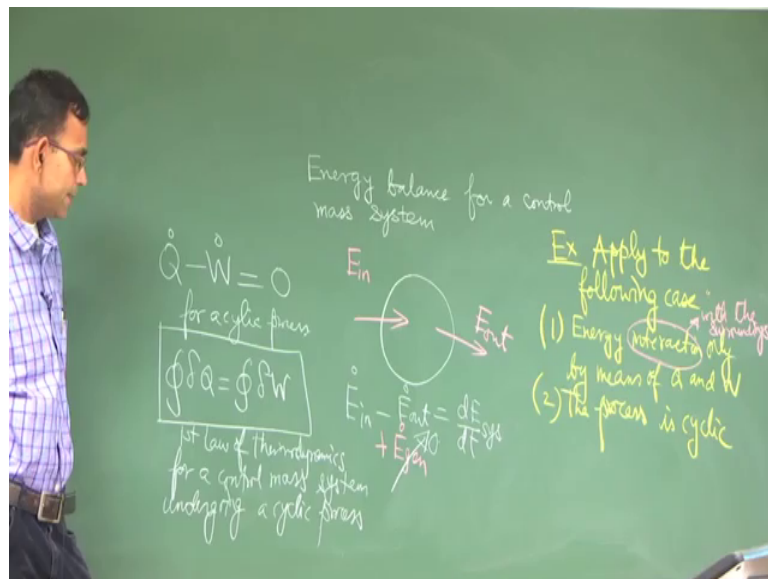 Energy balance for a control
mass system
Q̇ - Ẇ = 0
for a cylic process
∮δQ = ∮δW
1st Law of thermodynamics
for a control mass system
undergoing a cyclic process
E in
E out
Ė in - Ė out = dE/dt sys
+ Ė gen → 0
Ex Apply to the
following case:
(1) Energy interaction only
with the
surroundings
by means of Q and W
(2) The process is cyclic